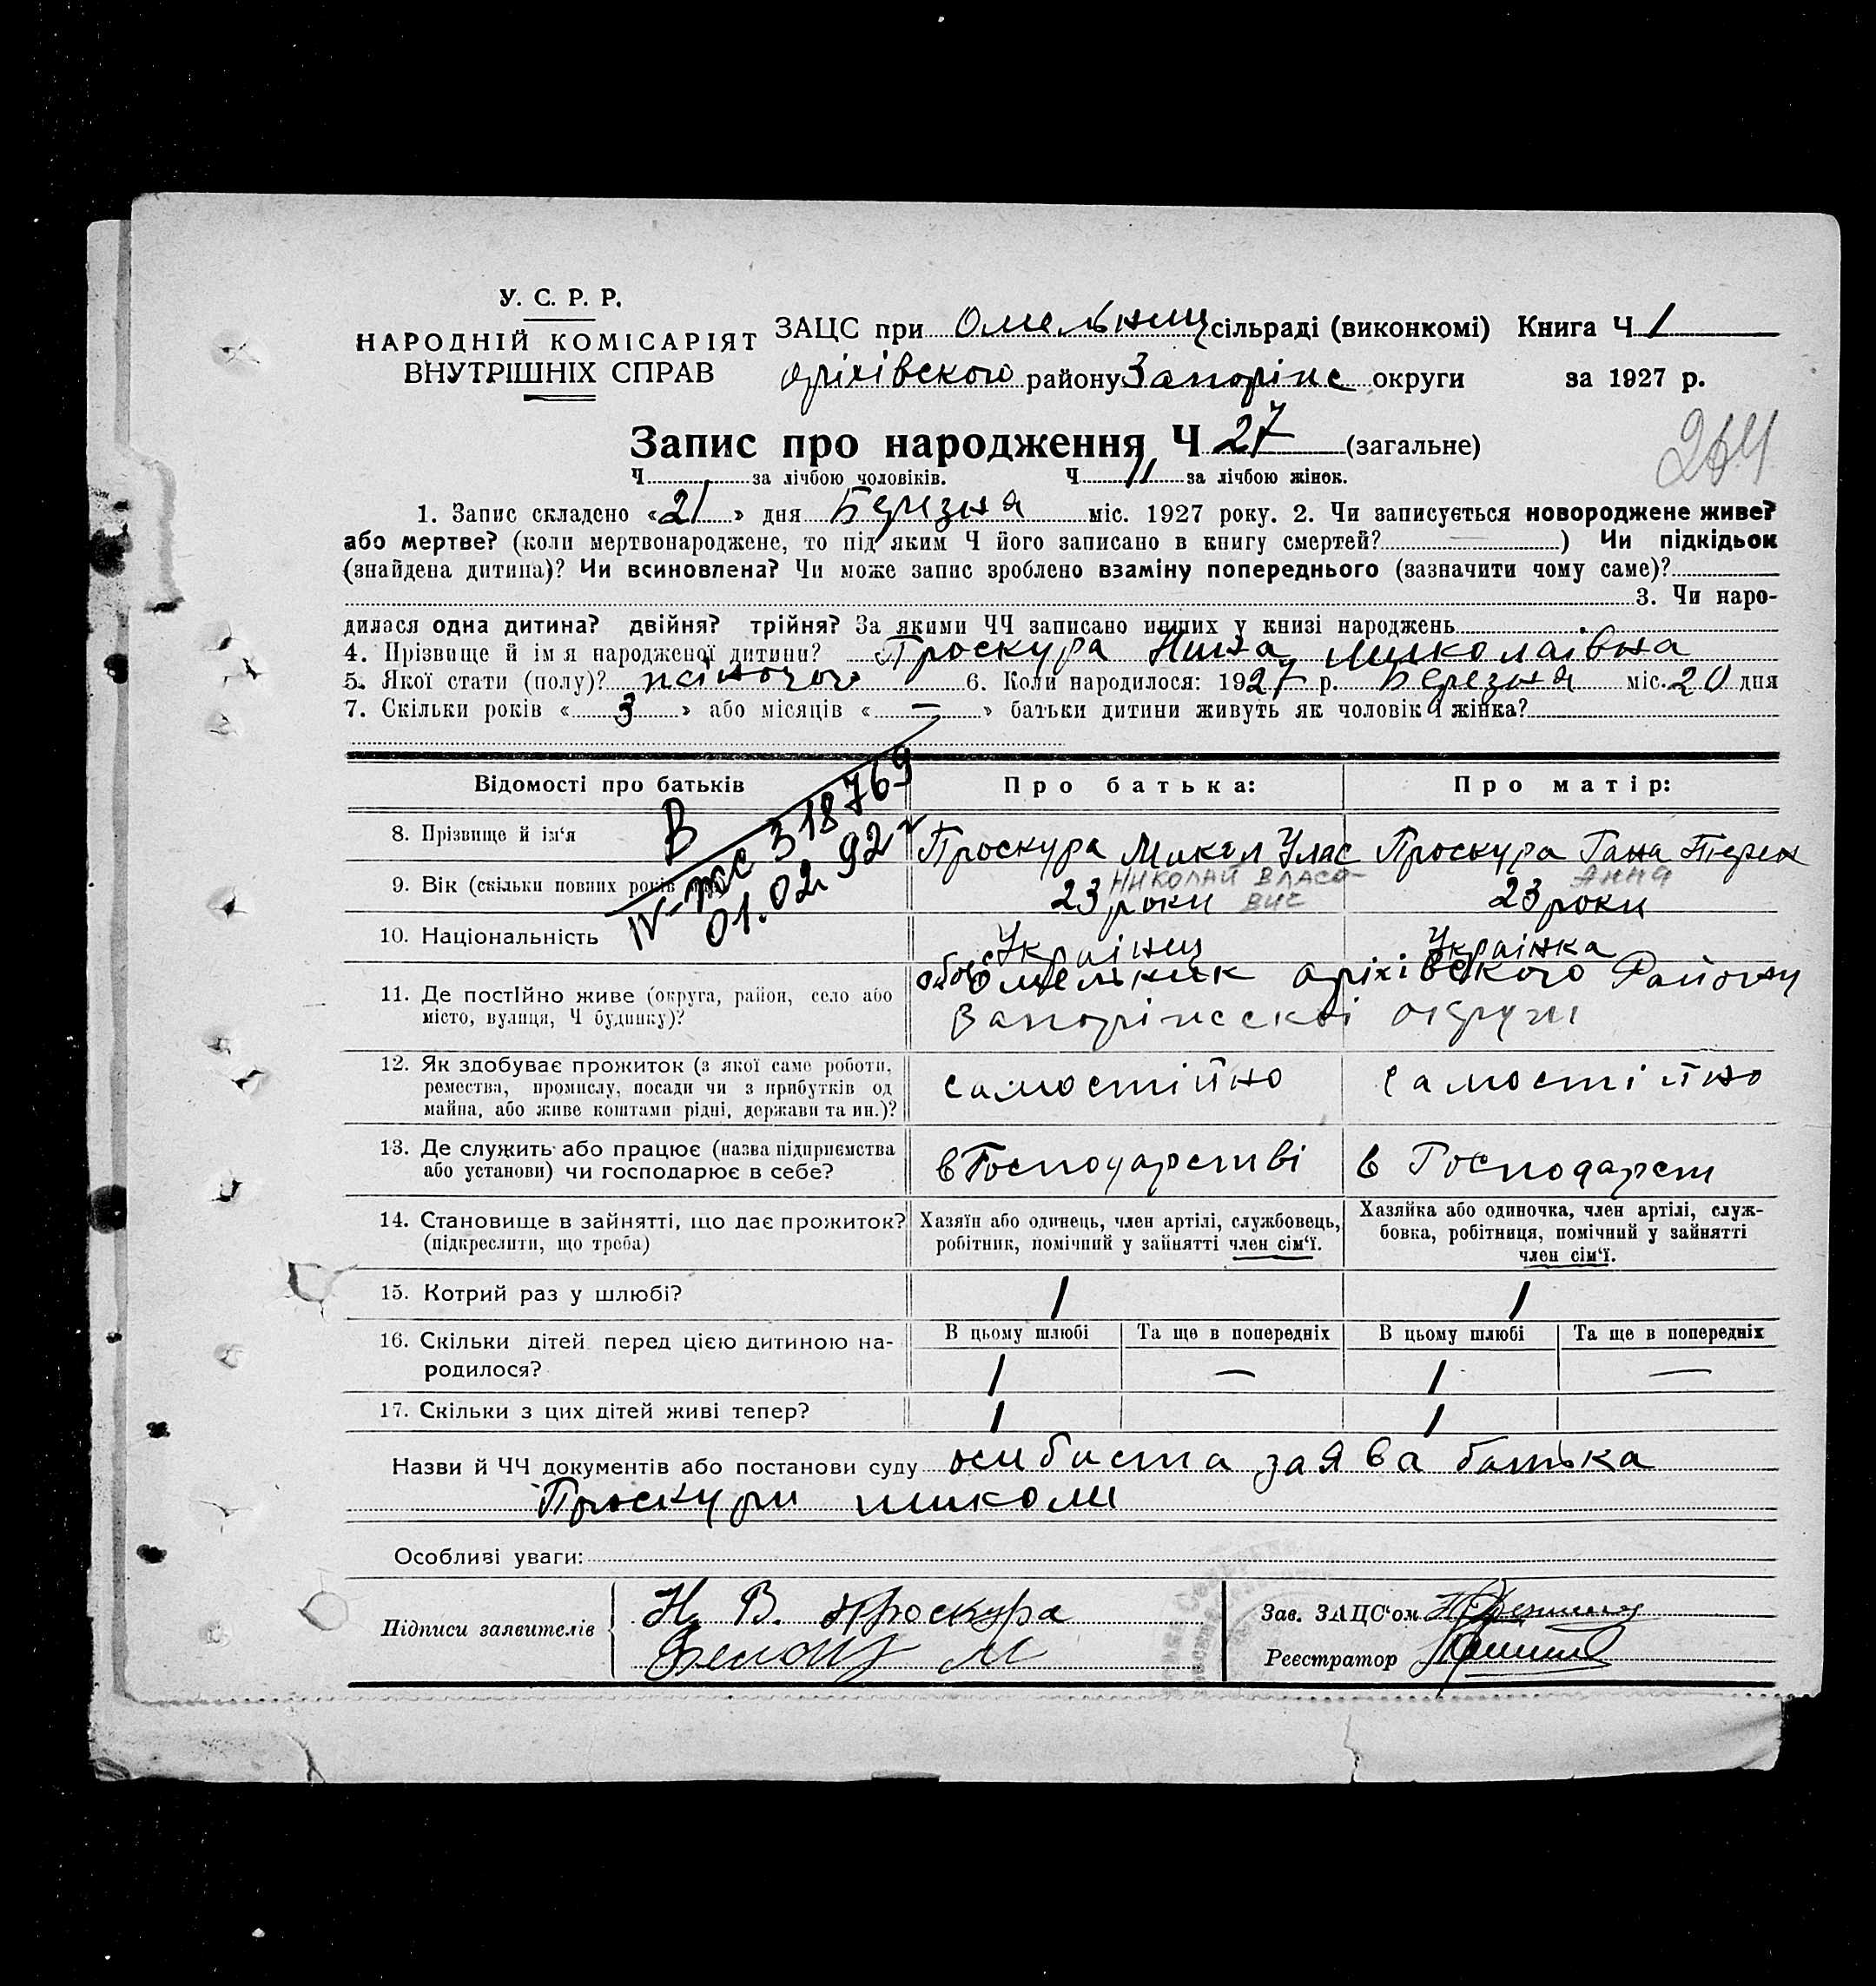 У. С. Р. Р.
НАРОДНІЙ КОМІСАРІЯТ
ВНУТРІШНІХ СПРАВ
ЗАЦС при Омельниц сільраді (виконкомі) Книга Ч 1
Оріхівского району Запоріже округи за 1927 р.
Запис про народження Ч 27 (загальне)
264
Ч за лічбою чоловіків. Ч 11 за лічбою жінок.
1. Запис складено «21» дня Березня міс. 1927 року. 2. Чи записується новороджене живе?
або мертве? (коли мертвонароджене, то під яким Ч його записано в книгу смертей? —) Чи підкідьок
(знайдена дитина)? Чи всиновлена? Чи може запис зроблено взаміну попереднього (зазначити чому саме)?
3. Чи наро-
дилася одна дитина? двійня? трійня? За якими ЧЧ записано инших у книзі народжень
4. Прізвище й ім я народженої дитини? Проскура Нина Миколаівна
5. Якої стати (полу)? жіночого 6. Коли народилося: 1927 р. Березня міс. 20 дня
7. Скільки років «3» або місяців «—» батьки дитини живуть як чоловік і жінка?
Відомості про батьків Про батька: Про матір:
В
IV-жс 318769
01.02.92 г
8. Прізвище й ім‘я Проскура Микол Улас Проскура Гана Терен
НИКОЛАЙ ВЛАСО-
ВИЧ АННА
9. Вік (скільки повних років 23 роки 23 роки
10. Національність Украінец Украінка
11. Де постійно живе (округа, район, село або
місто, вулиця, Ч будинку)?
обоє Омельник оріхівского Району
Запоріжскоі округи
12. Як здобуває прожиток (з якої саме роботи,
ремества, промислу, посади чи з прибутків од
майна, або живе коштами рідні, держави та ин.)?
самостійно самостійно
13. Де служить або працює (назва підприємства
або установи) чи господарює в себе?
в Господарстві в Господарст
14. Становище в зайнятті, що дає прожиток?
(підкреслити, що треба)
Хазяїн або одинець, член артілі, службовець,
робітник, помічний у зайнятті член сім‘ї.
Хазяйка або одиночка, член артілі, служ-
бовка, робітниця, помічний у зайнятті
член сім‘ї.
15. Котрий раз у шлюбі? 1 1
16. Скільки дітей перед цією дитиною на-
родилося?
В цьому шлюбі Та ще в попередніх В цьому шлюбі Та ще в попередніх
1 — 1 —
17. Скільки з цих дітей живі тепер? 1 1
Назви й ЧЧ документів або постанови суду осибиста заява батька
Проскури миколи
Особливі уваги:
Підписи заявителів
Н. В. Проскура
Зав. ЗАЦС‘ом
Реєстратор